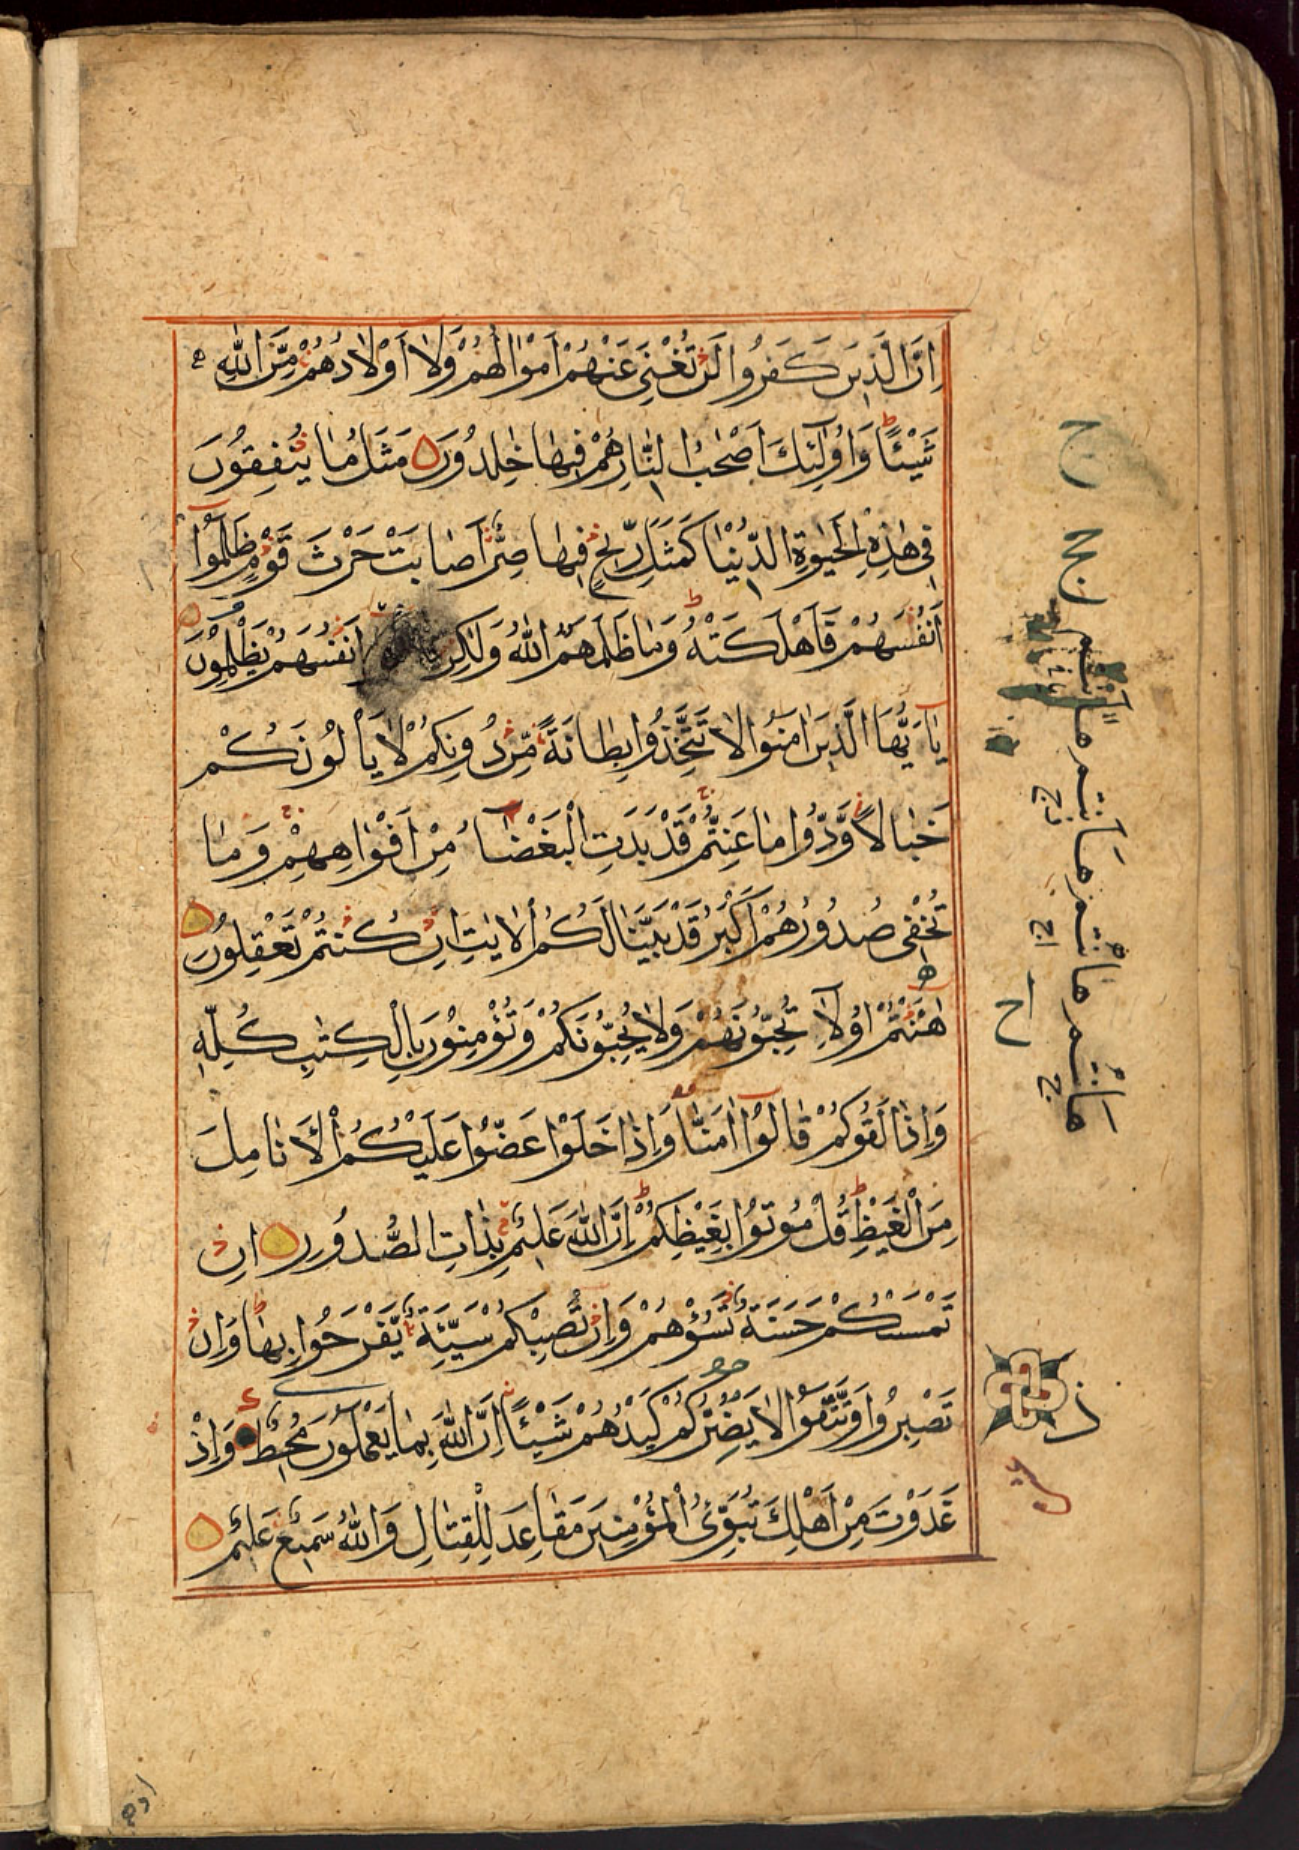 اِنَّ الَّذِينَ كَفَرُوا لَنْ تُغْنِيَ عَنْهُمْ اَمْوَالُهُمْ وَلَا اَوْلَادُهُمْ مِنَ اللّٰهِ
شَيْئًا وَاُولٰئِكَ اَصْحٰبُ النَّارِ هُمْ فِيهَا خٰلِدُونَ مَثَلُ مَا يُنْفِقُونَ
فِي هٰذِهِ الْحَيٰوةِ الدُّنْيَا كَمَثَلِ رِيحٍ فِيهَا صِرٌّ اَصَابَتْ حَرْثَ قَوْمٍ ظَلَمُوا
اَنْفُسَهُمْ فَاَهْلَكَتْهُ وَمَا ظَلَمَهُمُ اللّٰهُ وَلٰكِنْ اَنْفُسَهُمْ يَظْلِمُونَ
يَا اَيُّهَا الَّذِينَ اٰمَنُوا لَا تَتَّخِذُوا بِطَانَةً مِنْ دُونِكُمْ لَا يَأْلُونَكُمْ
خَبَالًا وَدُّوا مَا عَنِتُّمْ قَدْ بَدَتِ الْبَغْضَاءُ مِنْ اَفْوَاهِهِمْ وَمَا
تُخْفِي صُدُورُهُمْ اَكْبَرُ قَدْ بَيَّنَّا لَكُمُ الْاٰيٰتِ اِنْ كُنْتُمْ تَعْقِلُونَ
هٰاَنْتُمْ اُولَاءِ تُحِبُّونَهُمْ وَلَا يُحِبُّونَكُمْ وَتُؤْمِنُونَ بِالْكِتٰبِ كُلِّهِ
وَاِذَا لَقُوكُمْ قَالُوا اٰمَنَّا وَاِذَا خَلَوْا عَضُّوا عَلَيْكُمُ الْاَنَامِلَ
مِنَ الْغَيْظِ قُلْ مُوتُوا بِغَيْظِكُمْ اِنَّ اللّٰهَ عَلِيمٌ بِذَاتِ الصُّدُورِ اِنْ
تَمْسَسْكُمْ حَسَنَةٌ تَسُؤْهُمْ وَاِنْ تُصِبْكُمْ سَيِّئَةٌ يَفْرَحُوا بِهَا وَاِنْ
تَصْبِرُوا وَتَتَّقُوا لَا يَضُرُّكُمْ كَيْدُهُمْ شَيْئًا اِنَّ اللّٰهَ بِمَا يَعْمَلُونَ مُحِيطٌ وَاِذْ
غَدَوْتَ مِنْ اَهْلِكَ تُبَوِّئُ الْمُؤْمِنِينَ مَقَاعِدَ لِلْقِتَالِ وَاللّٰهُ سَمِيعٌ عَلِيمٌ